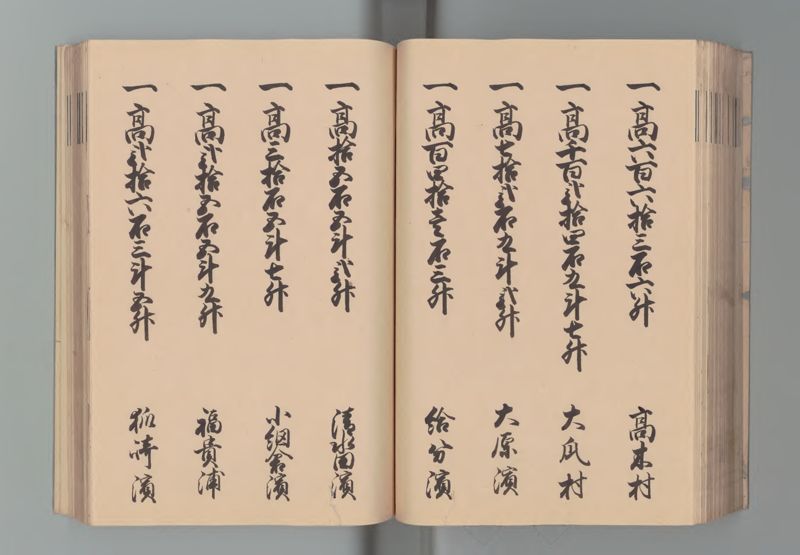 一高六百六拾三石六升 高木村
一高千百弐拾四石九斗七升 大瓜村
一高七拾弐石九斗弐升 大原濱
一高百四拾壱石三升 給分濱
一高拾五石五斗弐升 清水田濱
一高三拾石五斗七升 小網倉濱
一高弐拾五石五斗九升 福貴浦
一高弐拾六石三斗五升 狐崎濱